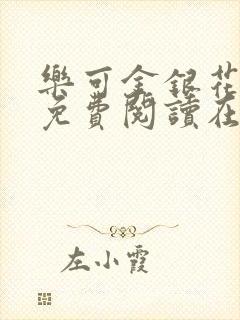 樂可金銀花
免費閱讀在
左小霞